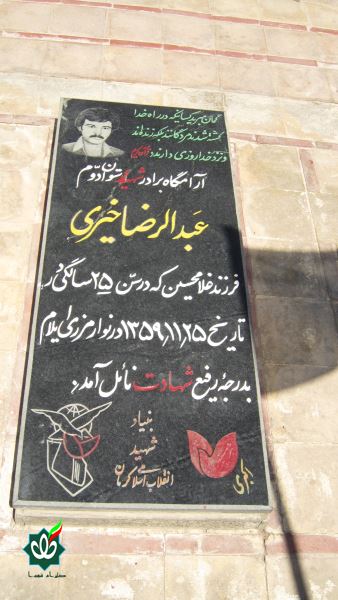 گمان مبرید کسانیکه در راه خدا
کشته شدند مردگانند بلکه زنده‌اند
و نزد خدا روزی دارند
آرامگاه برادر شهید ستوان دوم
عبدالرضا خیری
فرزند غلامحسین که در سن ۲۵ سالگی در
تاریخ ۱۳۵۹٫۱۱٫۲۵ در نوار مرزی ایلام
بدرجه رفیع شهادت نائل آمد:
بنیاد
شهید
انقلاب اسلامی کرمان